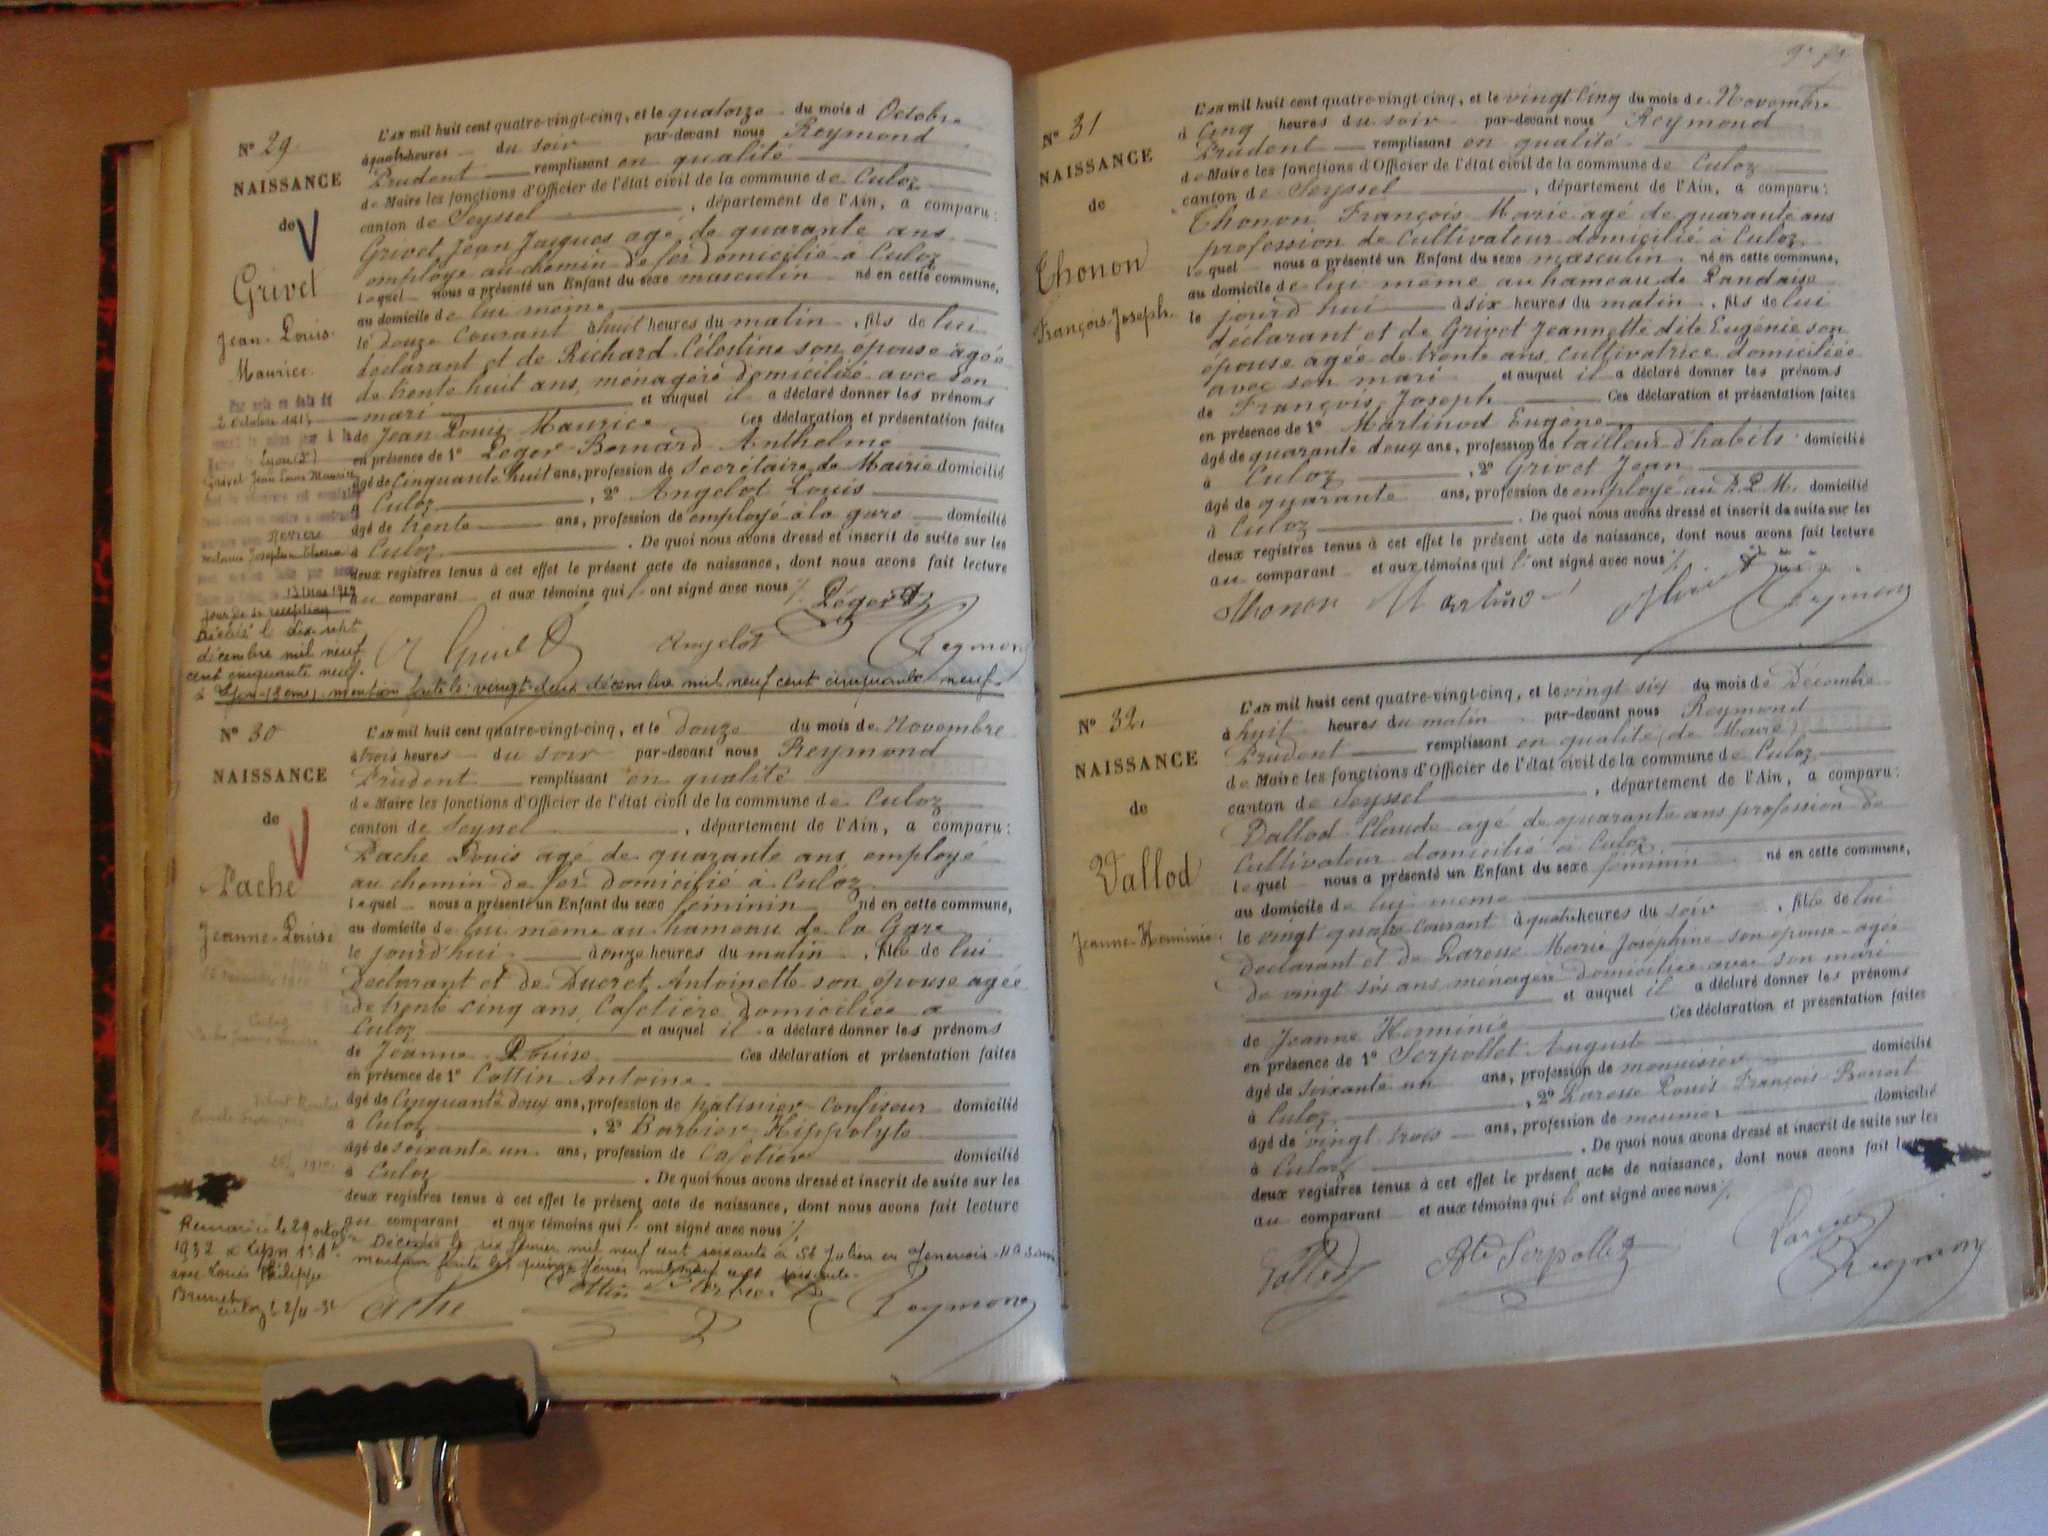 N° 29
NAISSANCE
de
Grivet
Jean-Louis
Maurice
L'an mil huit cent quatre-vingt-cinq, et le quatorze du mois d Octobre
à quatre heures du soir par-devant nous Reymond
Prudent remplissant en qualité
de Maire les fonctions d'Officier de l'état civil de la commune de Culoz
canton de Seyssel, département de l'Ain, a comparu:
Grivet Jean Jacques agé de quarante ans
employé au chemin de fer domicilié à Culoz
lequel nous a présenté un Enfant du sexe masculin né en cette commune,
au domicile de lui même
le douze Courant à huit heures du matin, fils de lui
déclarant et de Richard Célestine son épouse agée
de trente huit ans, ménagère domiciliée avec son
mari et auquel il a déclaré donner les prénoms
de Jean Louis Maurice Ces déclaration et présentation faites
en présence de 1° Léger Bernard Anthelme
âgé de Cinquante huit ans, profession de Secrétaire de Mairie domicilié
à Culoz, 2° Angelot Louis
âgé de trente ans, profession de employé à la gare domicilié
à Culoz. De quoi nous avons dressé et inscrit de suite sur les
deux registres tenus à cet effet le présent acte de naissance, dont nous avons fait lecture
au comparant et aux témoins qui l'ont signé avec nous
Léger
Angelot Reymond
Par acte en date de
2 Octobre
Lyon
Grivet Jean Louis Maurice
13 Mai
jour de sa réception
Décédé le dix-sept
décembre mil neuf
cent cinquante neuf
à Lyon (3ème) mention faite le vingt deux décembre mil neuf cent cinquante neuf
N° 30
NAISSANCE
de
Pache
Jeanne-Louise
L'an mil huit cent quatre-vingt-cinq, et le douze du mois de Novembre
à trois heures du soir par-devant nous Reymond
Prudent remplissant en qualité
de Maire les fonctions d'Officier de l'état civil de la commune de Culoz
canton de Seyssel, département de l'Ain, a comparu:
Pache Louis agé de quarante ans employé
au chemin de fer domicilié à Culoz
lequel nous a présenté un Enfant du sexe féminin né en cette commune,
au domicile de lui même au hameau de la Gare
le jourd'hui à onze heures du matin, fille de lui
Déclarant et de Ducret Antoinette son épouse agée
de trente cinq ans, Cafetière domiciliée à
Culoz et auquel il a déclaré donner les prénoms
de Jeanne Louise Ces déclaration et présentation faites
en présence de 1° Cottin Antoine
âgé de Cinquante deux ans, profession de patissier Confiseur domicilié
à Culoz, 2° Barbier Hippolyte
âgé de soixante un ans, profession de Cafetier domicilié
à Culoz. De quoi nous avons dressé et inscrit de suite sur les
deux registres tenus à cet effet le présent acte de naissance, dont nous avons fait lecture
au comparant et aux témoins qui l'ont signé avec nous
Décédée le six février mil neuf cent soixante à St Julien en Genevois
mention faite le quinze février mil neuf cent soixante
Remariée le 29 octobre
1932 à Lyon
avec Louis Philippe
Brunet
Culoz
Pache Cottin Barbier Reymond
N° 31
NAISSANCE
de
Thonon
François Joseph
L'an mil huit cent quatre-vingt-cinq, et le vingt cinq du mois de Novembre
à Cinq heures du soir par-devant nous Reymond
Prudent remplissant en qualité
de Maire les fonctions d'Officier de l'état civil de la commune de Culoz
canton de Seyssel, département de l'Ain, a comparu:
Thonon François Marie agé de quarante ans
profession de Cultivateur domicilié à Culoz
lequel nous a présenté un Enfant du sexe masculin né en cette commune,
au domicile de lui même au hameau de Landaise
le jourd'hui à six heures du matin, fils de lui
déclarant et de Grivet Jeannette dite Eugénie son
épouse agée de trente ans, cultivatrice domiciliée
avec son mari et auquel il a déclaré donner les prénoms
de François Joseph Ces déclaration et présentation faites
en présence de 1° Martinod Eugène
âgé de quarante deux ans, profession de tailleur d'habits domicilié
à Culoz, 2° Grivet Jean
âgé de quarante ans, profession de employé au P.L.M. domicilié
à Culoz. De quoi nous avons dressé et inscrit de suite sur les
deux registres tenus à cet effet le présent acte de naissance, dont nous avons fait lecture
au comparant et aux témoins qui l'ont signé avec nous
Thonon Martinod Reymond
N° 32
NAISSANCE
de
Vallod
Jeanne-Herminie
L'an mil huit cent quatre-vingt-cinq, et le vingt six du mois de Décembre
à huit heures du matin par-devant nous Reymond
Prudent remplissant en qualité (de Maire)
de Maire les fonctions d'Officier de l'état civil de la commune de Culoz
canton de Seyssel, département de l'Ain, a comparu:
Vallod Claude agé de quarante ans profession de
Cultivateur domicilié à Culoz
lequel nous a présenté un Enfant du sexe féminin né en cette commune,
au domicile de lui même
le vingt quatre Courant à quatre heures du soir, fille de lui
Déclarant et de Laresse Marie Joséphine son épouse agée
de vingt six ans ménagère domiciliée avec son mari
et auquel il a déclaré donner les prénoms
de Jeanne Herminie Ces déclaration et présentation faites
en présence de 1° Serpollet August
âgé de soixante un ans, profession de menuisier domicilié
à Culoz, 2° Laresse Louis François Benoit
âgé de vingt trois ans, profession de meunier domicilié
à Culoz. De quoi nous avons dressé et inscrit de suite sur les
deux registres tenus à cet effet le présent acte de naissance, dont nous avons fait lecture
au comparant et aux témoins qui l'ont signé avec nous
Vallod Serpollet Reymond